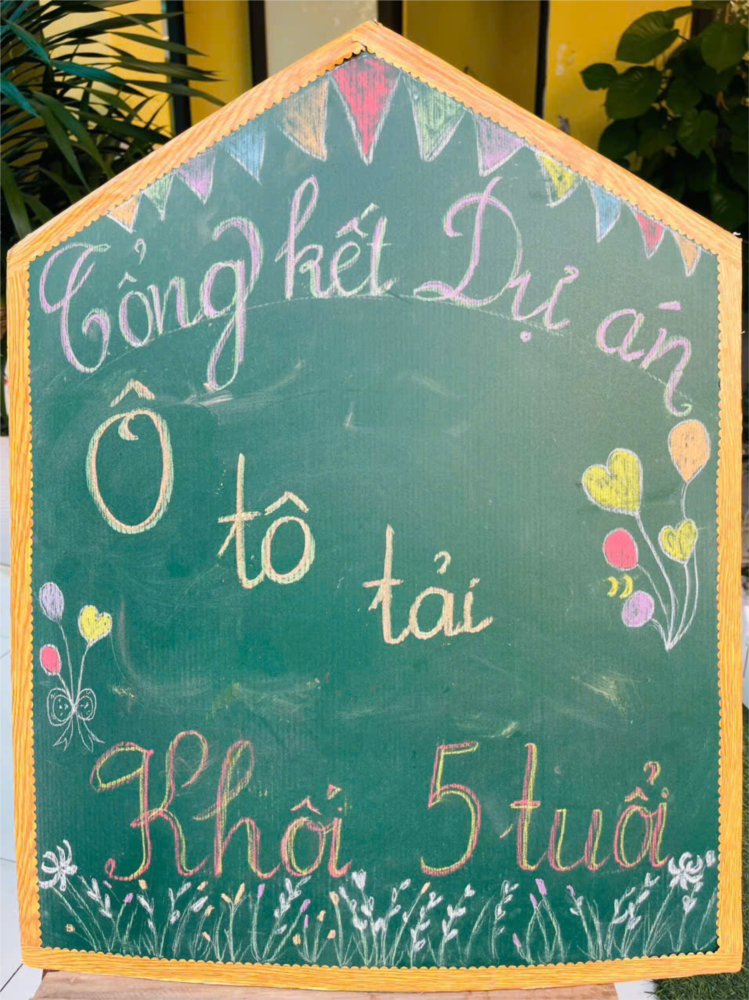 Tổng kết Dự án
Ô tô tải
Khối 5 tuổi